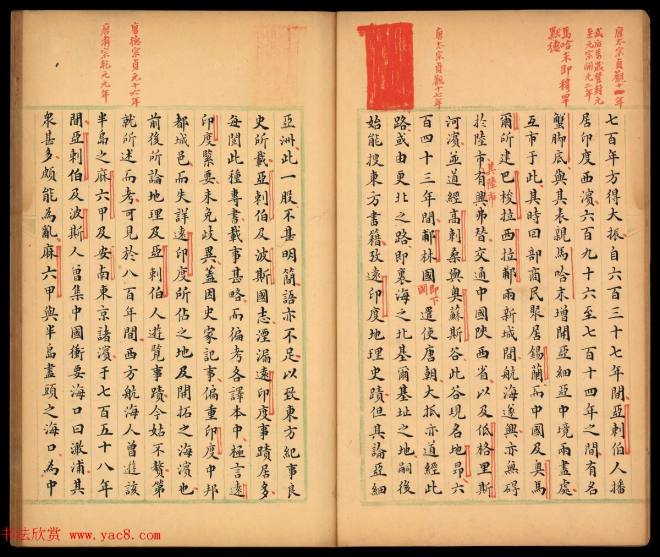 唐太宗貞觀十四年
至元宗開元二年
馬哈末即穆罕
默德
唐太宗貞觀十七年
七百年方得大振自六百三十七年間亞剌伯人播
居印度西濱六百九十六至七百十四年之間有名
蟹腳底與其表親馬哈末增開亞細亞中境兩盡處
互市于此其時回部商民聚居錫蘭而中國及奧馬
爾所建巴梭拉西拉鄆兩新城間航海遂興亦無碍
於陸市有與弗替交通中國陝西省以及低格里斯
其陸市
河濱並道經高剌桑與奧蘇斯谷此谷現名地昂六
百四十三年間鄆林國即下開選使唐朝大抵亦道經此
路或由更北之路即裏海之北基爾基址之地嗣後
始能搜東方書籍攷遠印度地理史蹟但其論亞細
唐德宗貞元十六年
唐肅宗乾元元年
亞洲此一股不甚明簡語亦不足以致東方紀事良
史所載亞剌伯及波斯國志湮漏遠印度事蹟居多
每閱此種專書載事甚略而徧考各譯本中極言遠
印度緊要未免歧異蓋因史家記事偏重印度中邦
都城邑而失詳遠印度所佔之地及開拓之海濱也
前後所論地理及亞剌伯人遊覽事蹟今姑不贅第
就所述而考可見於八百年間西方航海人曾遊該
半島之麻六甲及安南東京諸濱于七百五十八年
間亞剌伯及波斯人曾集中國衝要海口曰澉浦其
衆甚多頗能為亂麻六甲與半島盡頭之海口為中
书法欣赏 www.yac8.com